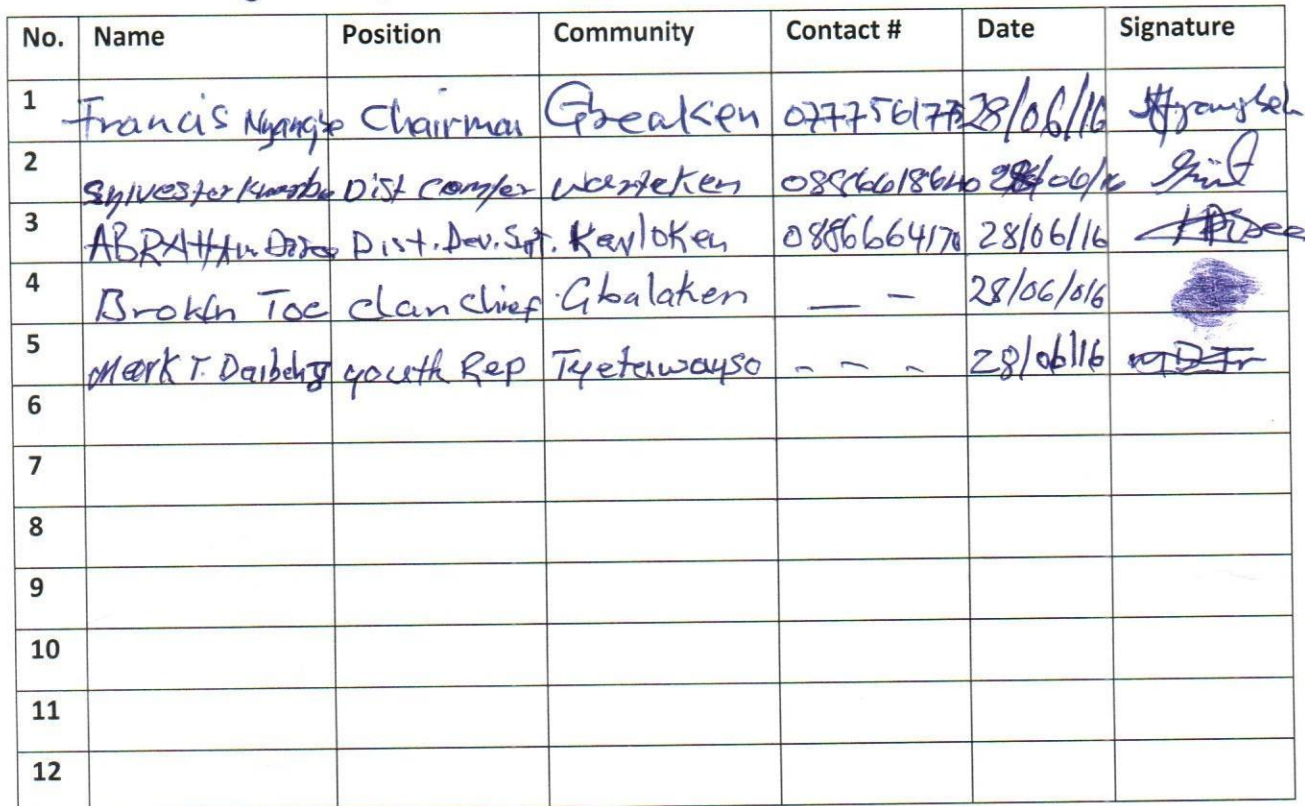 No. Name Position Community Contact # Date Signature
1 Francis Chairman Gbeaken 0777561773 28/06/16
2 Sylvester Dist 0886618640 28/06/16
3 ABRAHAM Dist. Dev. Spt. Kayloken 0886664170 28/06/16
4 Broken Toe clan chief Gbalaken — – 28/06/016
5 Mark T. youth Rep - - - 28/06/16
6
7
8
9
10
11
12